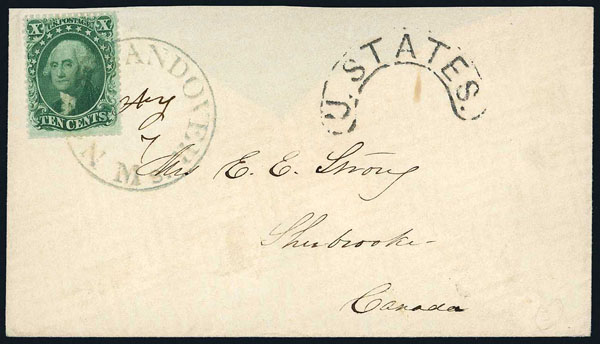 X X
U.S. POSTAGE
TEN CENTS
ANDOVER
U. STATES.
7
Mrs E. E. Strong
Sherbrooke
Canada